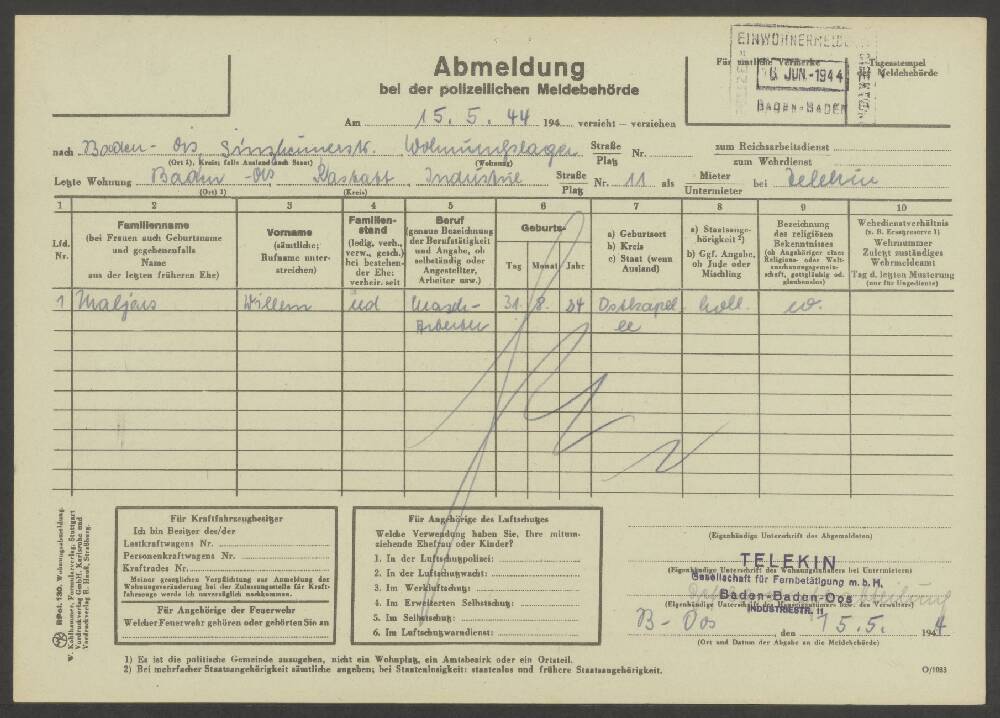 Abmeldung
bei der polizeilichen Meldebehörde
Für amtliche Vermerke
Tagesstempel
der Meldebehörde
EINWOHNERMELDE
6. JUN.-1944
BADEN-BADEN
Am 15. 5. 44 194 verzieht — verziehen
nach Baden - Oos Sinzheimerstr. Wohnungslager Straße Platz Nr.
(Ort 1), Kreis; falls Ausland auch Staat) (Wohnung)
zum Reichsarbeitsdienst
zum Wehrdienst
Letzte Wohnung Baden - Oos Rastatt Industrie Straße Platz Nr. 11 als Mieter Untermieter bei Telekin
(Ort) 1) (Kreis)
1 2 3 4 5 6 7 8 9 10
Lfd. Nr.
Familienname
(bei Frauen auch Geburtsname
und gegebenenfalls
Name
aus der letzten früheren Ehe)
Vorname
(sämtliche;
Rufname unterstreichen)
Familien-
stand
(ledig, verh.,
verw., gesch.)
bei bestehen-
der Ehe:
verheir. seit
Beruf
(genaue Bezeichnung
der Berufstätigkeit
und Angabe, ob
selbständig oder
Angestellter,
Arbeiter usw.)
Geburts-
Tag Monat Jahr
a) Geburtsort
b) Kreis
c) Staat (wenn
Ausland)
a) Staatsange-
hörigkeit 2)
b) Ggf. Angabe,
ob Jude oder
Mischling
Bezeichnung
des religiösen
Bekenntnisses
(ob Angehöriger einer
Religions- oder Welt-
anschauungsgemein-
schaft, gottgläubig od.
glaubenslos)
Wehrdienstverhältnis
(z. B. Ersatzreserve 1)
Wehrnummer
Zuletzt zuständiges
Wehrmeldeamt
Tag d. letzten Musterung
(nur für Ungediente)
1 Maljars Willem led Masch- 31. 8. 24 Ostkapel holl. ev.
Arbeiter le
RPol. 130. Wohnungsabmeldung.
W. Kohlhammer, Formularverlag, Stuttgart
Vordruckverlag GmbH, Karlsruhe und
Vordruckverlag B. Hauß, Straßburg.
Für Kraftfahrzeugbesitzer
Ich bin Besitzer des/der
Lastkraftwagens Nr.
Personenkraftwagens Nr.
Kraftrades Nr.
Meiner gesetzlichen Verpflichtung zur Anmeldung der
Wohnungsveränderung bei der Zulassungsstelle für Kraft-
fahrzeuge werde ich unverzüglich nachkommen.
Für Angehörige der Feuerwehr
Welcher Feuerwehr gehören oder gehörten Sie an
Für Angehörige des Luftschutzes
Welche Verwendung haben Sie, Ihre mitum-
ziehende Ehefrau oder Kinder?
1. In der Luftschutzpolizei:
2. In der Luftschutzwacht:
3. Im Werkluftschutz:
4. Im Erweiterten Selbstschutz:
5. Im Selbstschutz:
6. Im Luftschutzwarndienst:
(Eigenhändige Unterschrift des Abgemeldeten)
TELEKIN
(Eigenhändige Unterschrift des Wohnungsinhabers bei Untermietern)
Gesellschaft für Fernbetätigung m.b.H.
Baden-Baden-Oos
(Eigenhändige Unterschrift des Hauseigentümers bzw. des Verwalters)
INDUSTRIESTR. 11
B - Oos, den 15. 5. 1944
(Ort und Datum der Abgabe an die Meldebehörde)
1) Es ist die politische Gemeinde anzugeben, nicht ein Wohnplatz, ein Amtsbezirk oder ein Ortsteil.
2) Bei mehrfacher Staatsangehörigkeit sämtliche angeben; bei Staatenlosigkeit: staatenlos und frühere Staatsangehörigkeit.
O/1083